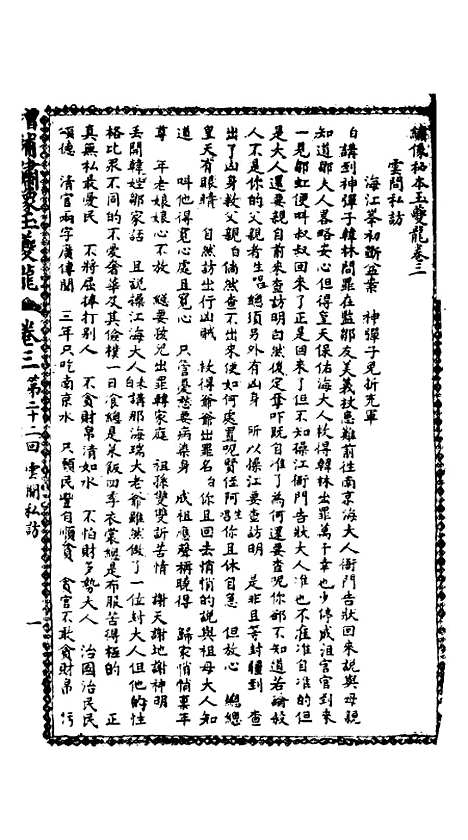 繡像秘本玉夔龍卷三
雲間私訪
海江峯初斷盆案　神彈子免折充軍
白講到神彈子韓林問罪在監鄒友美義扶患難前往南京海大人衙門告狀回來說與母親
知道鄒夫人畧略安心但得皇天保佑海大人救得韓林出罪萬千幸也少停成祖官官到來
一見鄒虹便叫叔叔回來了正是回來了但不知操江衙門告狀大人准也不准准自准的但
是大人還要親自前來查訪明白然後定奪吓既自准了為何還要查呢你都不知道若論奴
人不是你的父親者生唱總須另外有凶身　所以操江要查訪明　是非且等封疆到　查
出了凶身救父親白倘然查不出來便如何處置呢賢侄阿唱你且休自急　但放心　總總
皇天有眼睛　自然訪出行凶賊　救得爺爺出罪名白你且回去悄悄的說與祖母大人知
道　叫他得寬心處且寬心　只管憂愁要病染身　成祖應聲稱曉得　歸家悄悄稟年
尊　年老娘娘心不放　總要孩兒出罪轉家庭　祖孫雙雙訴苦情　謝天謝地謝神明
丟開韓姓鄒家話　且說操江海大人白未講那海瑞大老爺雖然做了一位封大人但他的性
格比眾不同的不愛奢華及其儉樸一日食總是菜飯四季衣裳總是布服苦得極的　正
真無私最愛民　不將屈棒打別人　不貪財帛清如水　不怕財多勢大人　治國治民民
頌德　清官兩字廣傳聞　三年只吃南京水　只願民豐自順貧　貪官不敢貪財帛　污
增補繡像玉夔龍　卷三　第二十二回　雲間私訪　一